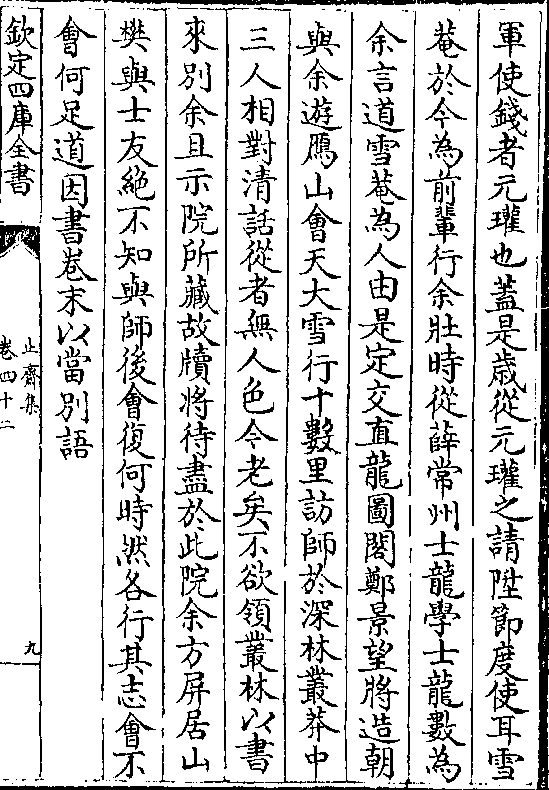 軍使錢者元瓘也蓋是歳從元瓘之請陞節度使耳雪
菴於今為前輩行余壯時從薛常州士龍學士龍數為
余言道雪菴為人由是定交直龍圖閣鄭景望將造朝
與余遊鴈山會天大雪行十數里訪師於深林叢莽中
三人相對清話從者無人色今老矣不欲領叢林以書
來別余且示院所藏故牘將待盡於此院余方屏居山
樊與士友絶不知與師後會復何時然各行其志會不
會何足道因書卷末以當別語
欽定四庫全書
止齋集
卷四十二
九